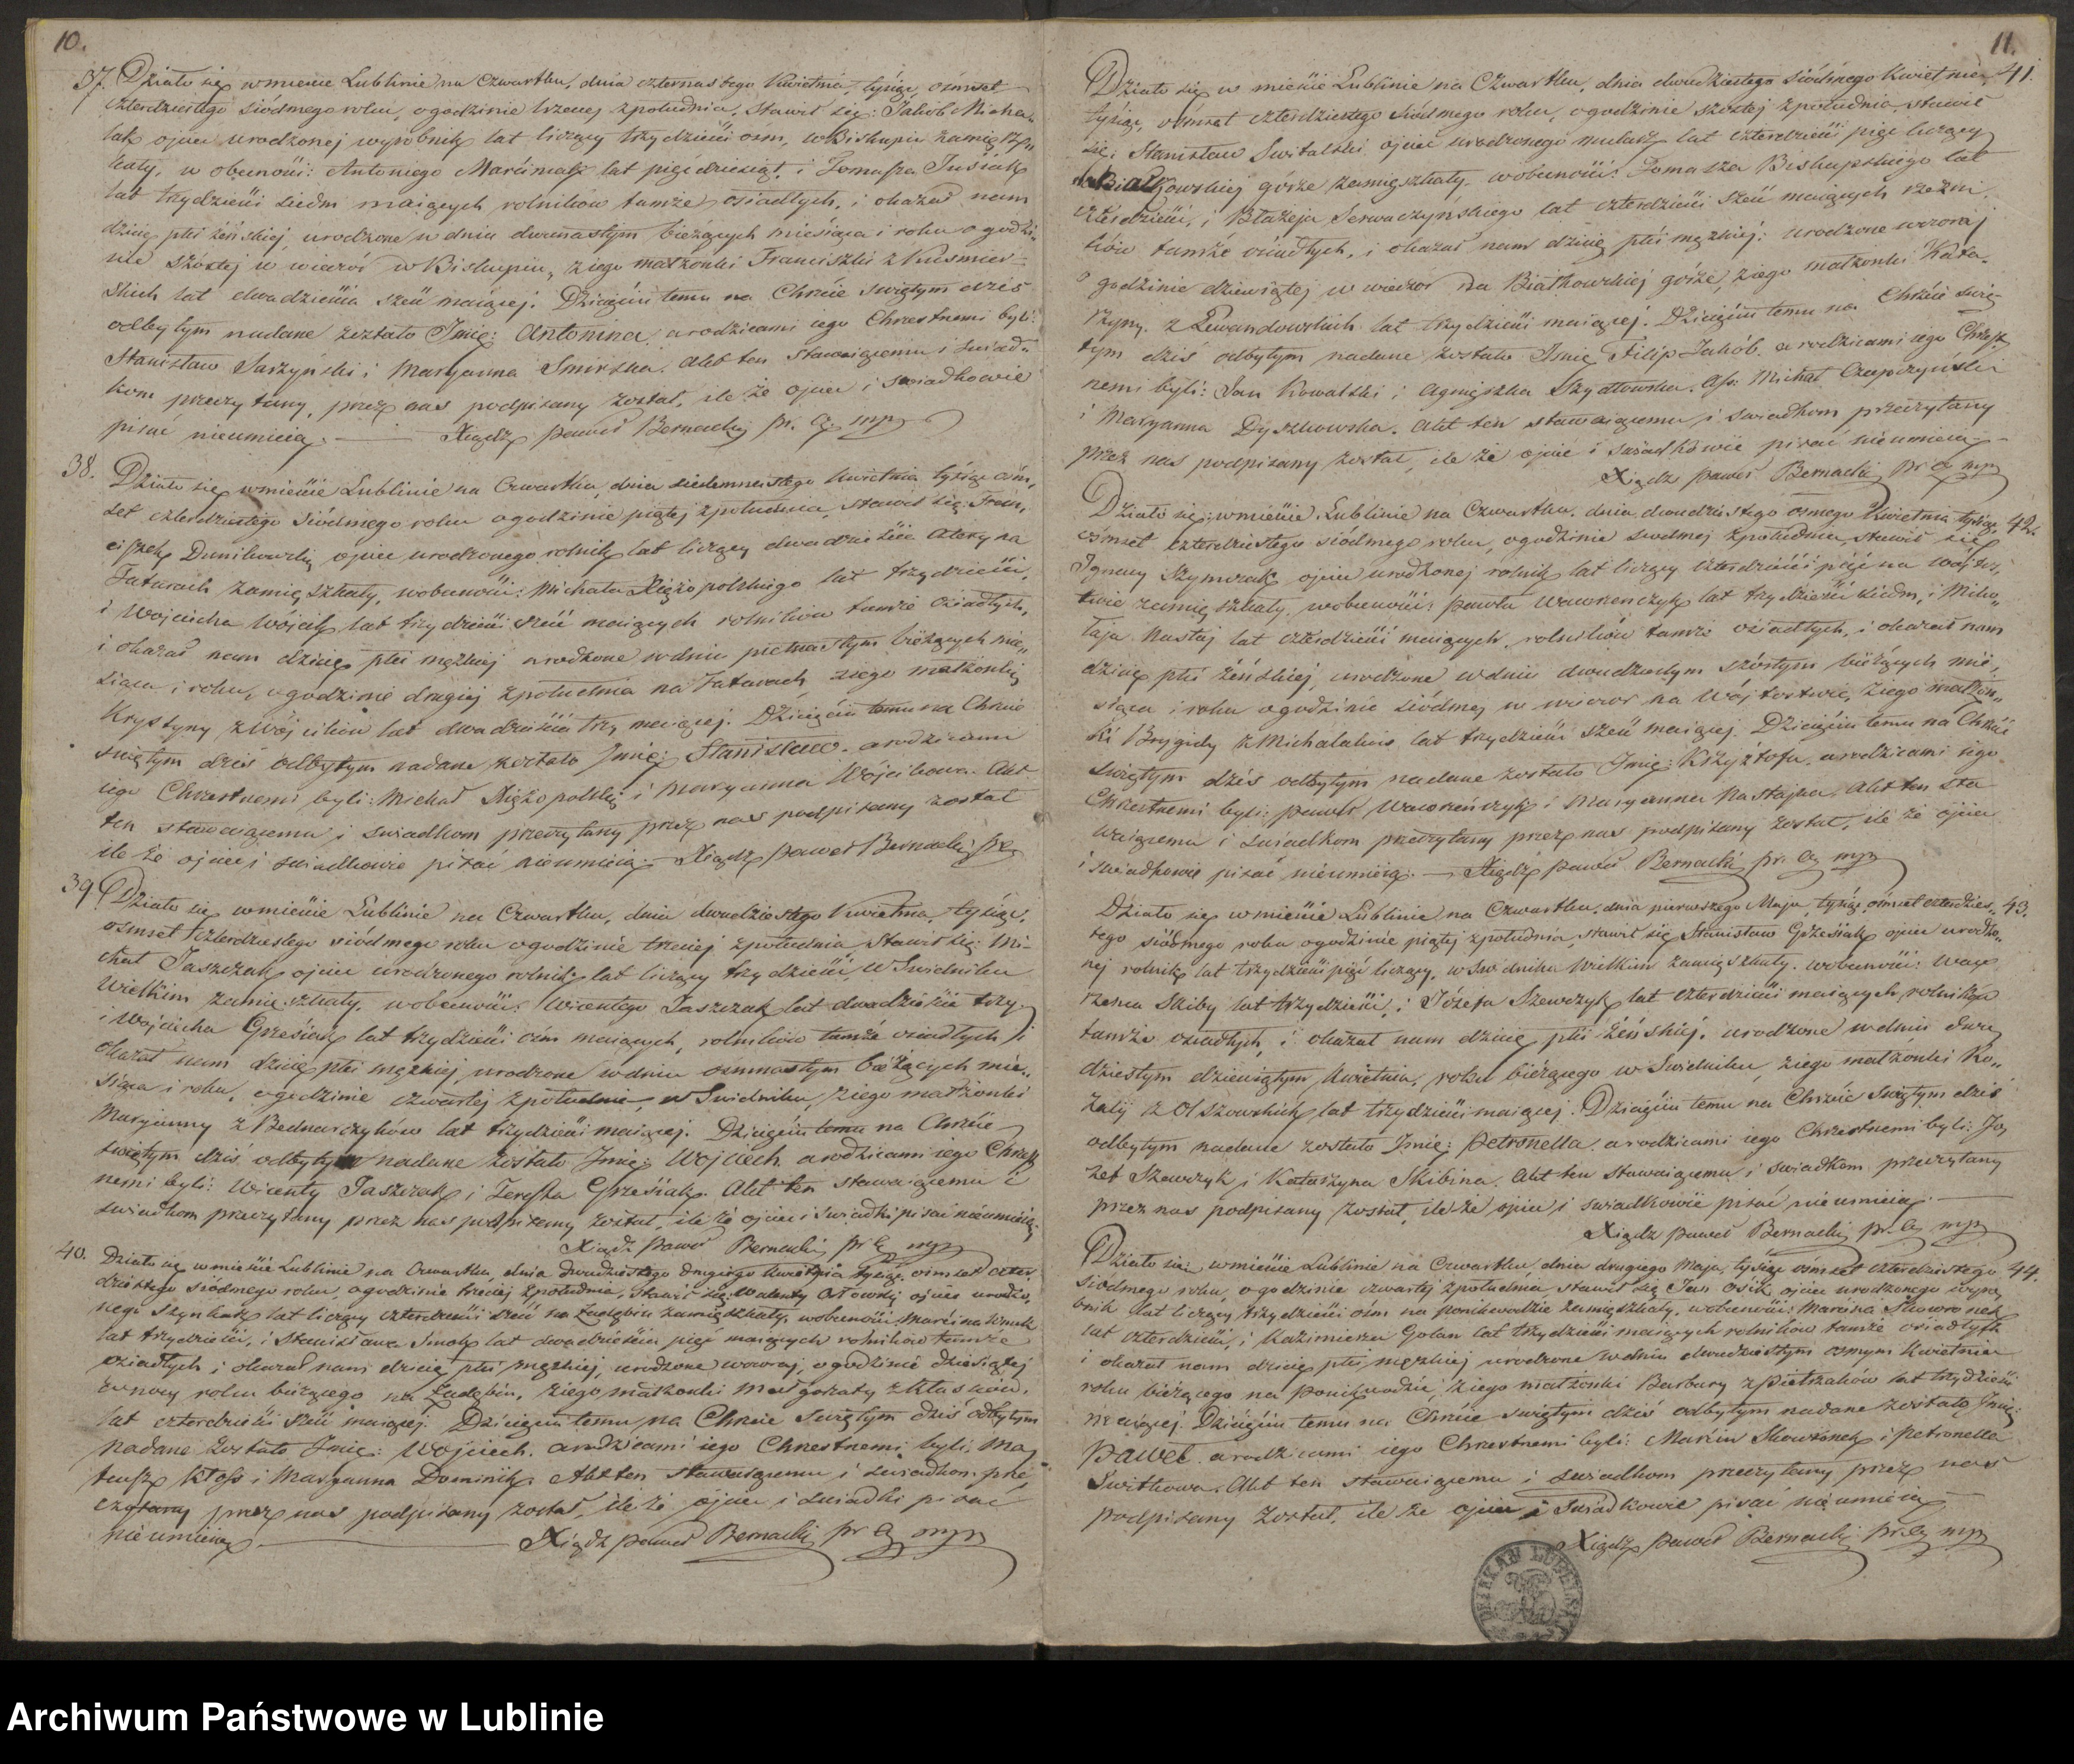 10.
37. Działo się w mieście Lublinie na Czwartku, dnia czternastego Kwietnia, tysiąc ośmset
czterdziestego siódmego roku, o godzinie trzeciej z południa. Stawił się: Jakób Micha„
lak ojciec urodzonej wyrobnik lat liczący trzydzieści osm, w Biskupiu zamiesz„
kały, w obecności: Antoniego Marciniak lat pięćdziesiąt, i Tomasza Jusiak
lat trzydzieści siedm maiących rolników tamże osiadłych, i okazał nam
dziecię płci żeńskiej, urodzone w dniu dwunastym bieżących miesiąca i roku o godzi„
nie szóstej w wieczór w Biskupiu, z iego małżonki Franciszki z Kusmier„
skich lat dwadzieścia sześć maiącej. Dziecięciu temu na Chrzcie świętym dziś
odbytym nadane zostało Imię: Antonina, a rodzicami iego Chrzestnemi byli:
Stanisław Saszyński i Maryanna Smirska. Akt ten stawaiącemu i świad„
kom przeczytany, przez nas podpisany został, ile że ojciec i świadkowie
pisać nieumieią. Xiądz Paweł Bernacki pr. mp
38. Działo się w mieście Lublinie na Czwartku, dnia siedemnastego Kwietnia tysiąc ośm„
set czterdziestego siódmego roku o godzinie piątej z południa, stawił się: Fran„
ciszek Dunikowski ojciec urodzonego rolnik lat liczący dwadzieścia cztery na
Tatarach zamieszkały, w obecności: Michała Xiężopolskiego lat trzydzieści,
i Wojciecha Wójcik lat trzydzieści sześć maiących rolników tamże osiadłych,
i okazał nam dziecię płci męzkiej urodzone w dniu piętnastym bieżących mie„
siąca i roku, o godzinie drugiej z południa na Tatarach, z iego małżonki
Krystyny z Wójcików lat dwadzieścia trzy maiącej. Dziecięciu temu na Chrzcie
świętym dziś odbytym nadane zostało Imię: Stanisław. a rodzicami
iego Chrzestnemi byli: Michał Xiężopolski i Maryanna Wójcikowa. Akt
ten stawaiącemu i świadkom przeczytany przez nas podpisany został
ile że ojciec i świadkowie pisać nieumieią. Xiądz Paweł Bernacki
39. Działo się w mieście Lublinie na Czwartku, dnia dwudziestego Kwietnia, tysiąc,
ośmset czterdziestego siódmego roku o godzinie trzeciej z południa Stawił się: Mi-
chał Jaszczak ojciec urodzonego rolnik lat liczący trzydzieści, w Swidniku
Wielkim zamieszkały, w obecności: Wincentego Jaszczak lat dwadzieścia trzy
i Wojciecha Grześiak lat trzydzieści ośm maiących, rolników tamże osiadłych i
okazał nam dziecię płci męzkiej, urodzone w dniu osmnastym bieżących mie„
siąca i roku, o godzinie czwartej z południa, w Swidniku, z iego małżonki
Maryanny z Bednarczyków lat trzydzieści maiącej. Dziecięciu temu na Chrzcie
świętym dziś odbytym nadane zostało Imię: Wojciech. a rodzicami iego Chrzest
nemi byli: Wicenty Jaszczak i Tereska Grześiak. Akt ten stawaiącemu i
świadkom przeczytany przez nas podpisany został, ile że ojciec i świadki pisać nieumieią.
Xiądz Paweł Bernacki pr mp
40. Działo się w mieście Lublinie na Czwartku, dnia dwudziestego drugiego Kwietnia tysiąc ośmset czter„
dziestego siódmego roku, o godzinie trzeciej z południa, stawił się: Walenty ojciec urodzo„
nego szynkarz lat liczący czterdzieści sześć na Zadębiu zamieszkały, w obecności: Marcina Wnuk
lat trzydzieści, i Stanisława Smoły lat dwadzieścia pięć maiących rolników tamże
osiadłych, i okazał nam dziecię płci męzkiej, urodzone wczoraj, o godzinie dziesiątej
w nocy roku bieżącego na Zadębiu, z iego małżonki Małgorzaty z Kłosów,
lat czterdzieści sześć maiącej. Dziecięciu temu na Chrzcie Swiętym dziś odbytym
nadane zostało Imię: Wojciech. a rodzicami iego Chrzestnemi byli: Ma„
teusz Kłoss i Maryanna Dominik. Akt ten stawaiącemu i świadkom prze„
czytany przez nas podpisany został, ile że ojciec i świadki pisać
nieumieią. Xiądz Paweł Bernacki pr mp
11.
Działo się w mieście Lublinie na Czwartku, dnia dwudziestego siódmego Kwietnia 41.
tysiąc, ośmset czterdziestego siódmego roku, o godzinie szóstej z południa, stawił
się: Stanisław Switalski ojciec urodzonego mularz lat czterdzieści pięć liczący
na Białkowskiej górze zamieszkały, w obecności: Tomasza Biskupskiego lat
czterdzieści, i Błażeja Serwaczyńskiego lat czterdzieści sześć maiących rzeźni„
ków tamże osiadłych, i okazał nam dziecię płci męzkiej: urodzone wczoraj
o godzinie dziewiątej w wieczor na Białkowskiej górze, z iego małżonki Kata„
rzyny z Lewandowskich lat trzydzieści maiącej. Dziecięciu temu na Chrzcie świę„
tym dziś odbytym nadane zostało Imię Filip Jakób. a rodzicami iego Chrzest„
nemi byli: Jan Kowalski i Agnieszka Szydłowska. Ass: Michał Czepczyński
i Maryanna Dyszkowska. Akt ten stawaiącemu i świadkom przeczytany
przez nas podpisany został, ile że ojciec i świadkowie pisać nieumieią
Xiądz Paweł Bernacki pr mp
Działo się w mieście Lublinie na Czwartku, dnia dwudziestego ósmego Kwietnia tysiąc 42.
ośmset czterdziestego siódmego roku, o godzinie siodmej z południa, stawił się
Ignacy Szymczak ojciec urodzonej rolnik lat liczący czterdzieści pięć na Wójtos„
twie zamieszkały, w obecności: Pawła Wawrzeńczyk lat trzydzieści siedm, i Miko„
łaja Nastaj lat czterdzieści maiących, rolników tamże osiadłych, i okazał nam
dziecię płci żeńskiej, urodzone w dniu dwudziestym szóstym bieżących mie„
siąca i roku o godzinie siódmej w wieczor na Wójtostwie, z iego małżon„
ki Brygidy z Michalaków lat trzydzieści sześć maiącej. Dziecięciu temu na Chrzcie
świętym dziś odbytym nadane zostało Imię: Krzyżtofa, a rodzicami iego
Chrzestnemi byli: Paweł Wawrzeńczyk i Maryanna Nastajka. Akt ten sta
waiącemu i świadkom przeczytany przez nas podpisany został, ile że ojciec
i świadkowie pisać nieumieią. — Xiądz Paweł Bernacki pr. mp
Działo się w mieście Lublinie na Czwartku, dnia pierwszego Maja, tysiąc ośmset czterdzies„ 43.
tego siódmego roku o godzinie piątej z południa, stawił się Stanisław Grześiak ojciec urodzo„
nej rolnik lat trzydzieści pięć liczący, w Swidniku Wielkim zamieszkały, w obecności: Waw
rzeńca Skiby lat trzydzieści, i Józefa Szewczyk lat czterdzieści maiących, rolników
tamże osiadłych, i okazał nam dziecię płci żeńskiej, urodzone w dniu dwu
dziestym dziewiątym Kwietnia, roku bieżącego w Swidniku, z iego małżonki Ro„
zalij z Olszowskich lat trzydzieści maiącej. Dziecięciu temu na Chrzcie Swiętym dziś
odbytym nadane zostało Imię: Petronella. a rodzicami iego Chrzestnemi byli: Jó„
zef Szewczyk i Katarzyna Skibina. Akt ten stawaiącemu i świadkom przeczytany
przez nas podpisany został, ile że ojciec i świadkowie pisać nieumieią. —
Xiądz Paweł Bernacki pr. mp
Działo się w mieście Lublinie na Czwartku, dnia drugiego Maja, tysiąc ośmset czterdziestego 44.
siodmego roku, o godzinie czwartej z południa, stawił się Jan Osik ojciec urodzonego wyro„
bnik lat liczący trzydzieści ośm na Ponikwodzie zamieszkały, w obecności: Marcina Skowronek
lat czterdzieści, i Kazimierza Golan lat trzydzieści maiących rolników tamże osiadłych
i okazał nam dziecię płci męzkiej urodzone w dniu dwudziestym osmym Kwietnia
roku bieżącego na Ponikwodzie, z iego małżonki Barbary z Pietrzaków lat trzydzieści
maiącej. Dziecięciu temu na Chrzcie swiętym dziś odbytym nadane zostało Imię:
Paweł. a rodzicami iego Chrzestnemi byli: Marcin Skowronek i Petronella
Switkowa. Akt ten stawaiącemu i świadkom przeczytany przez nas
podpisany został, ile że ojciec i świadkowie pisać nieumieią.
Xiądz Paweł Bernacki pr. mp
DZIEKAN LUBELSKI
Archiwum Państwowe w Lublinie